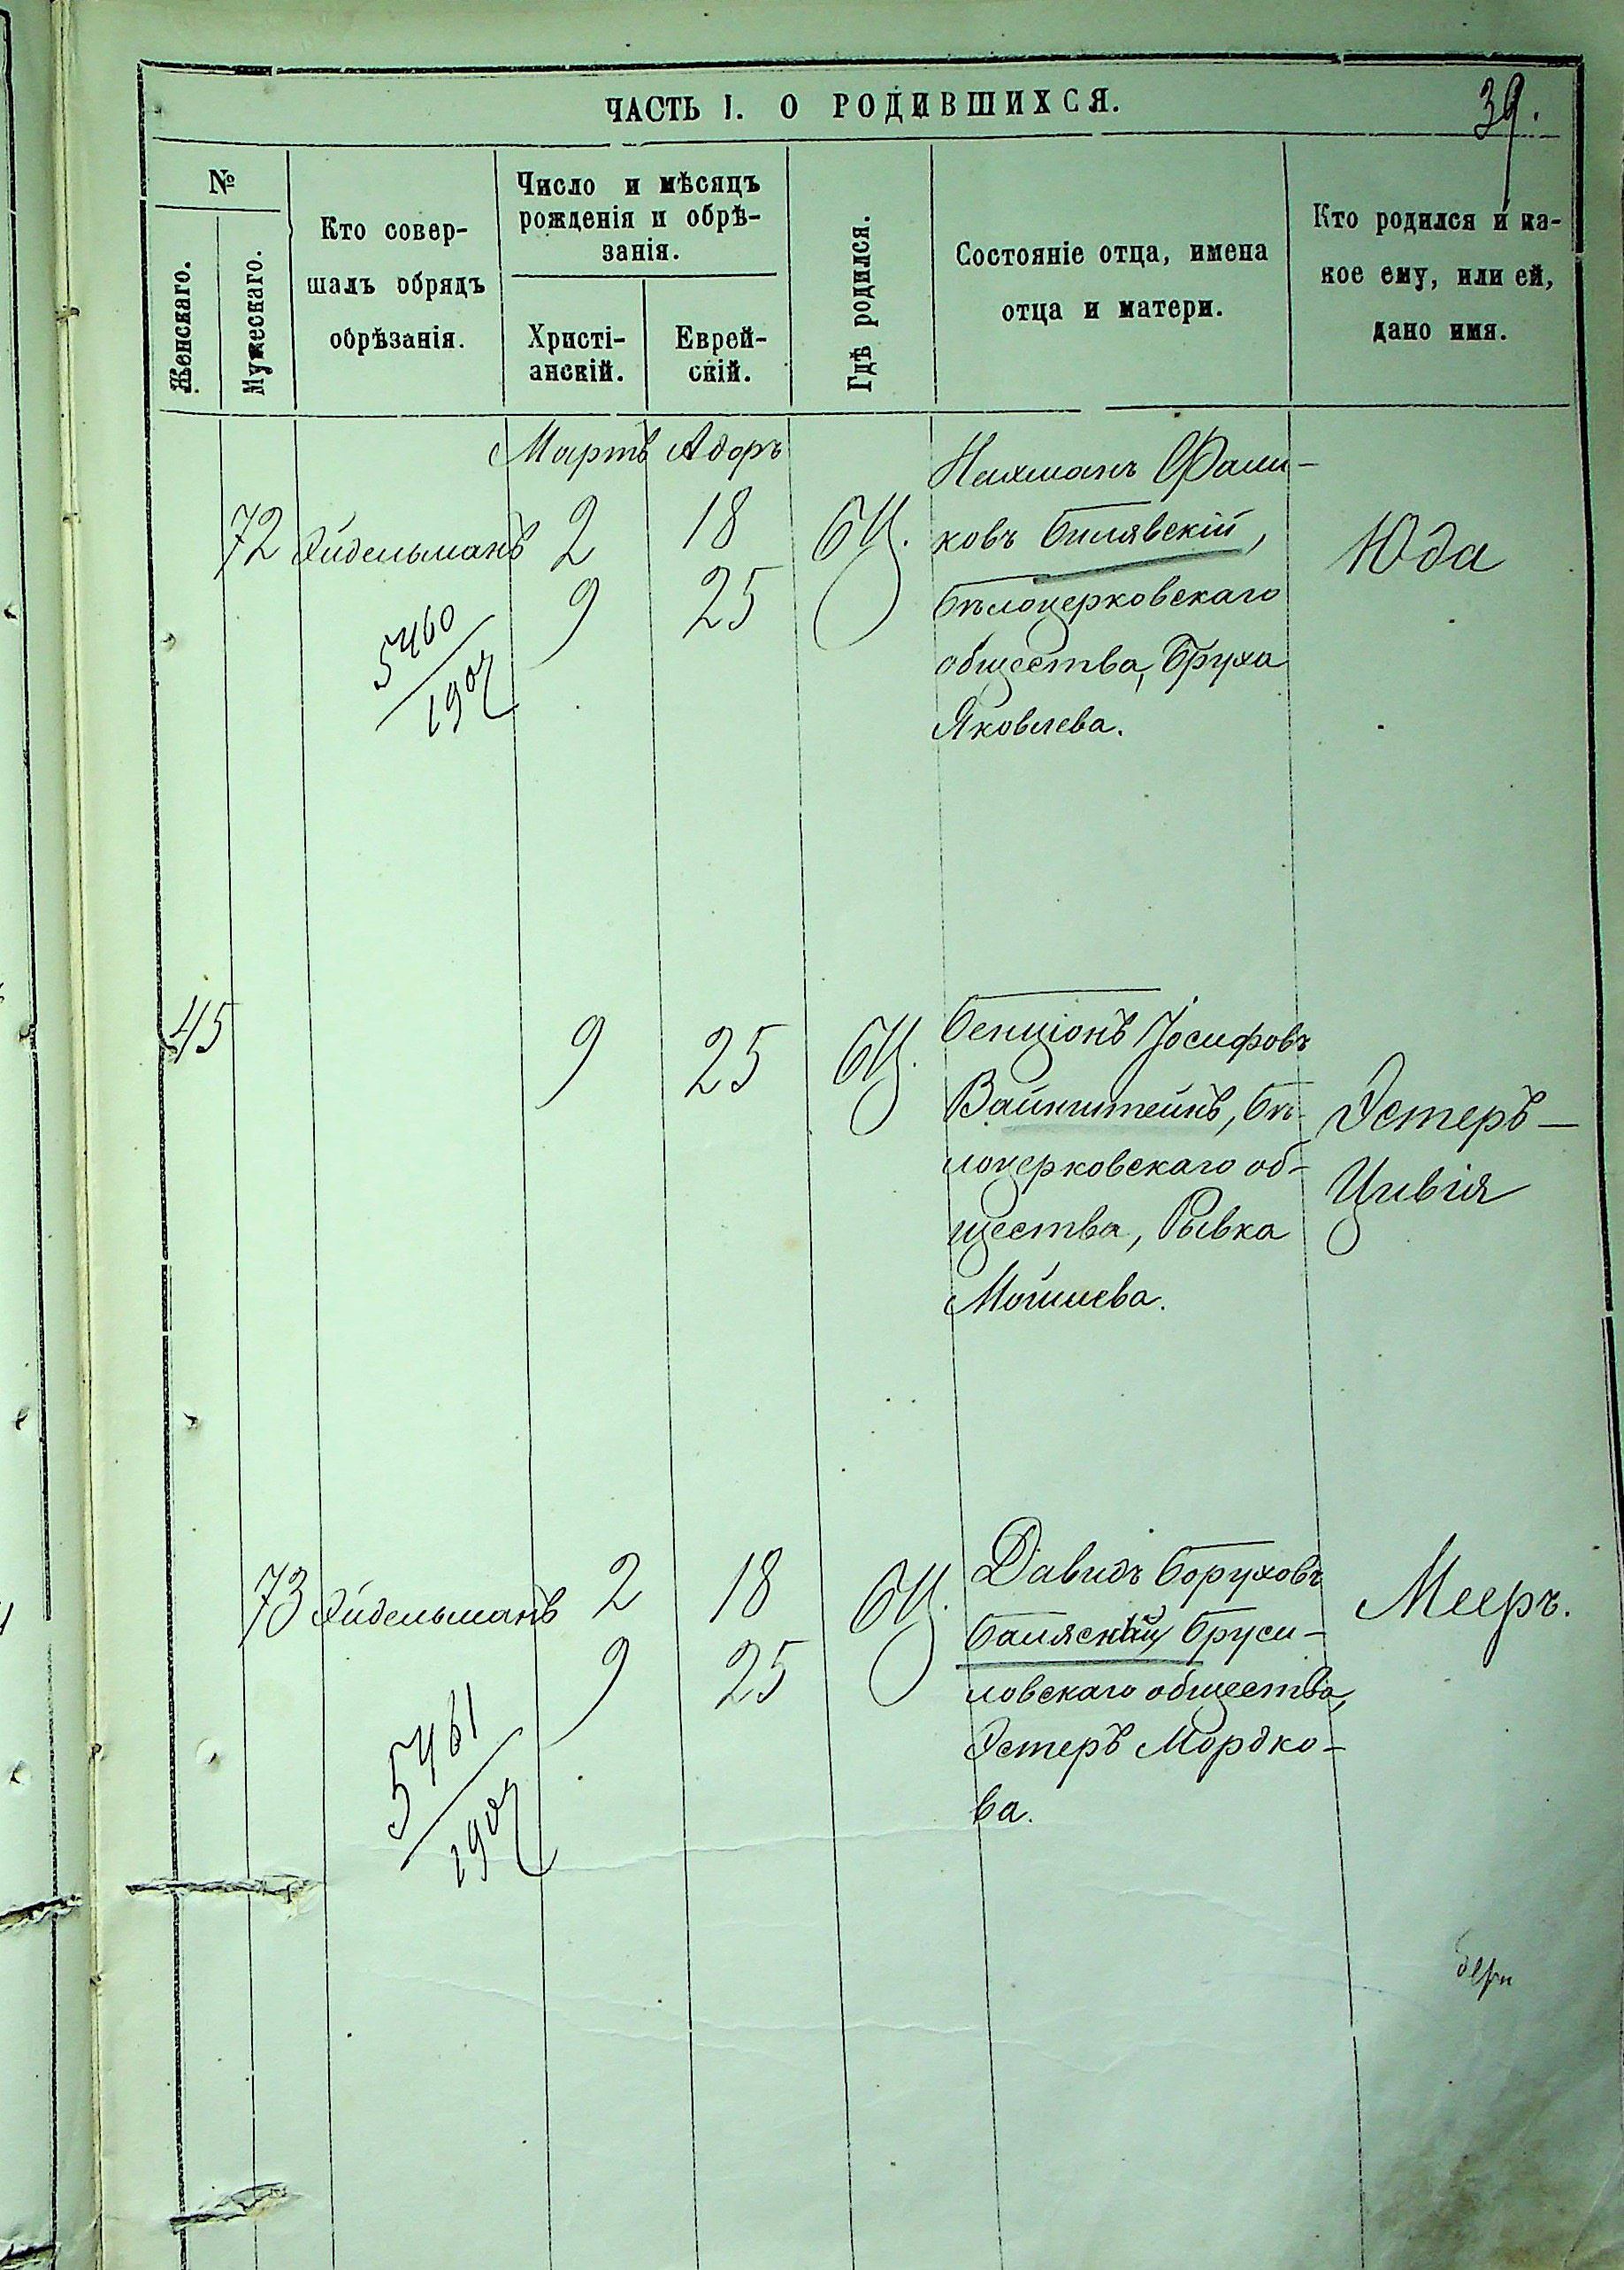 ЧАСТЬ I. О РОДИВШИХСЯ.
39.
№
Женскаго.
Мужескаго.
Кто совер-
шалъ обрядъ
обрѣзанія.
Число и мѣсяцъ
рожденія и обрѣ-
занія.
Христі-
анскій.
Еврей-
скій.
Гдѣ родился.
Состояніе отца, имена
отца и матери.
Кто родился и ка-
кое ему, или ей,
дано имя.
Мартъ Адоръ
72 Эйдельманъ 2 18 БЦ.
9 25
5460
1907
Нахманъ Фали-
ковъ Билявскій,
Бѣлоцерковскаго
общества, Бруха
Яковлева.
Юда
45 9 25 БЦ.
Бенціонъ Іосифовъ
Вайнштейнъ, Бѣ-
лоцерковскаго об-
щества, Рывка
Мошкева.
Эстеръ-
Цивія
73 Эйдельманъ 2 18 БЦ.
9 25
5461
1907
Давидъ Боруховъ
Балясный Бруси-
ловскаго общества,
Эстеръ Мордко-
ва.
Мееръ.